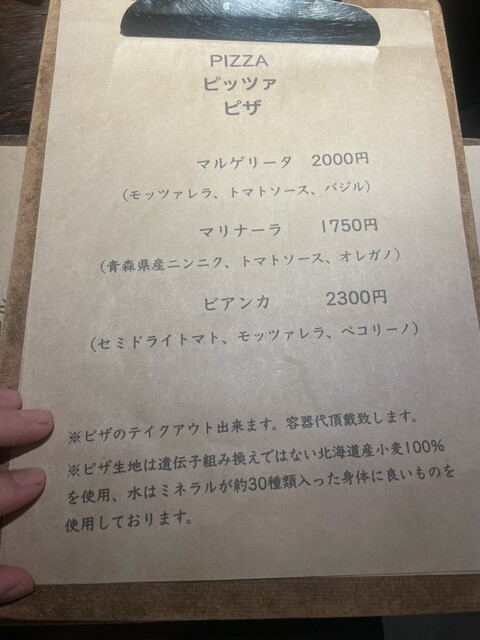 PIZZA
ピッツァ
ピザ
マルゲリータ 2000円
(モッツァレラ、トマトソース、バジル)
マリナーラ 1750円
(青森県産ニンニク、トマトソース、オレガノ)
ビアンカ 2300円
(セミドライトマト、モッツァレラ、ペコリーノ)
※ピザのテイクアウト出来ます。容器代頂戴致します。
※ピザ生地は遺伝子組み換えではない北海道産小麦100%
を使用、水はミネラルが約30種類入った身体に良いものを
使用しております。